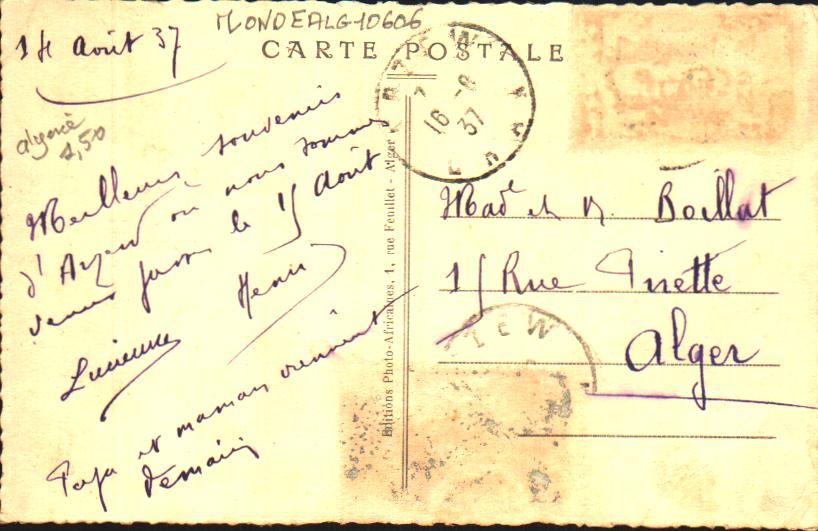 MONDEALG-10606
14 Août 37
CARTE POSTALE
algerie
2,50
Meilleurs souvenirs
d'Arzew où nous sommes
venus passer le 15 Août
Lucienne Henri
Papa et maman viennent
demain
Editions Photo-Africaines, 1, rue Feuillet - Alger
ARZEW
16 -8
37
Made et M. Boillat
15 Rue Pirette
Alger
ZEW